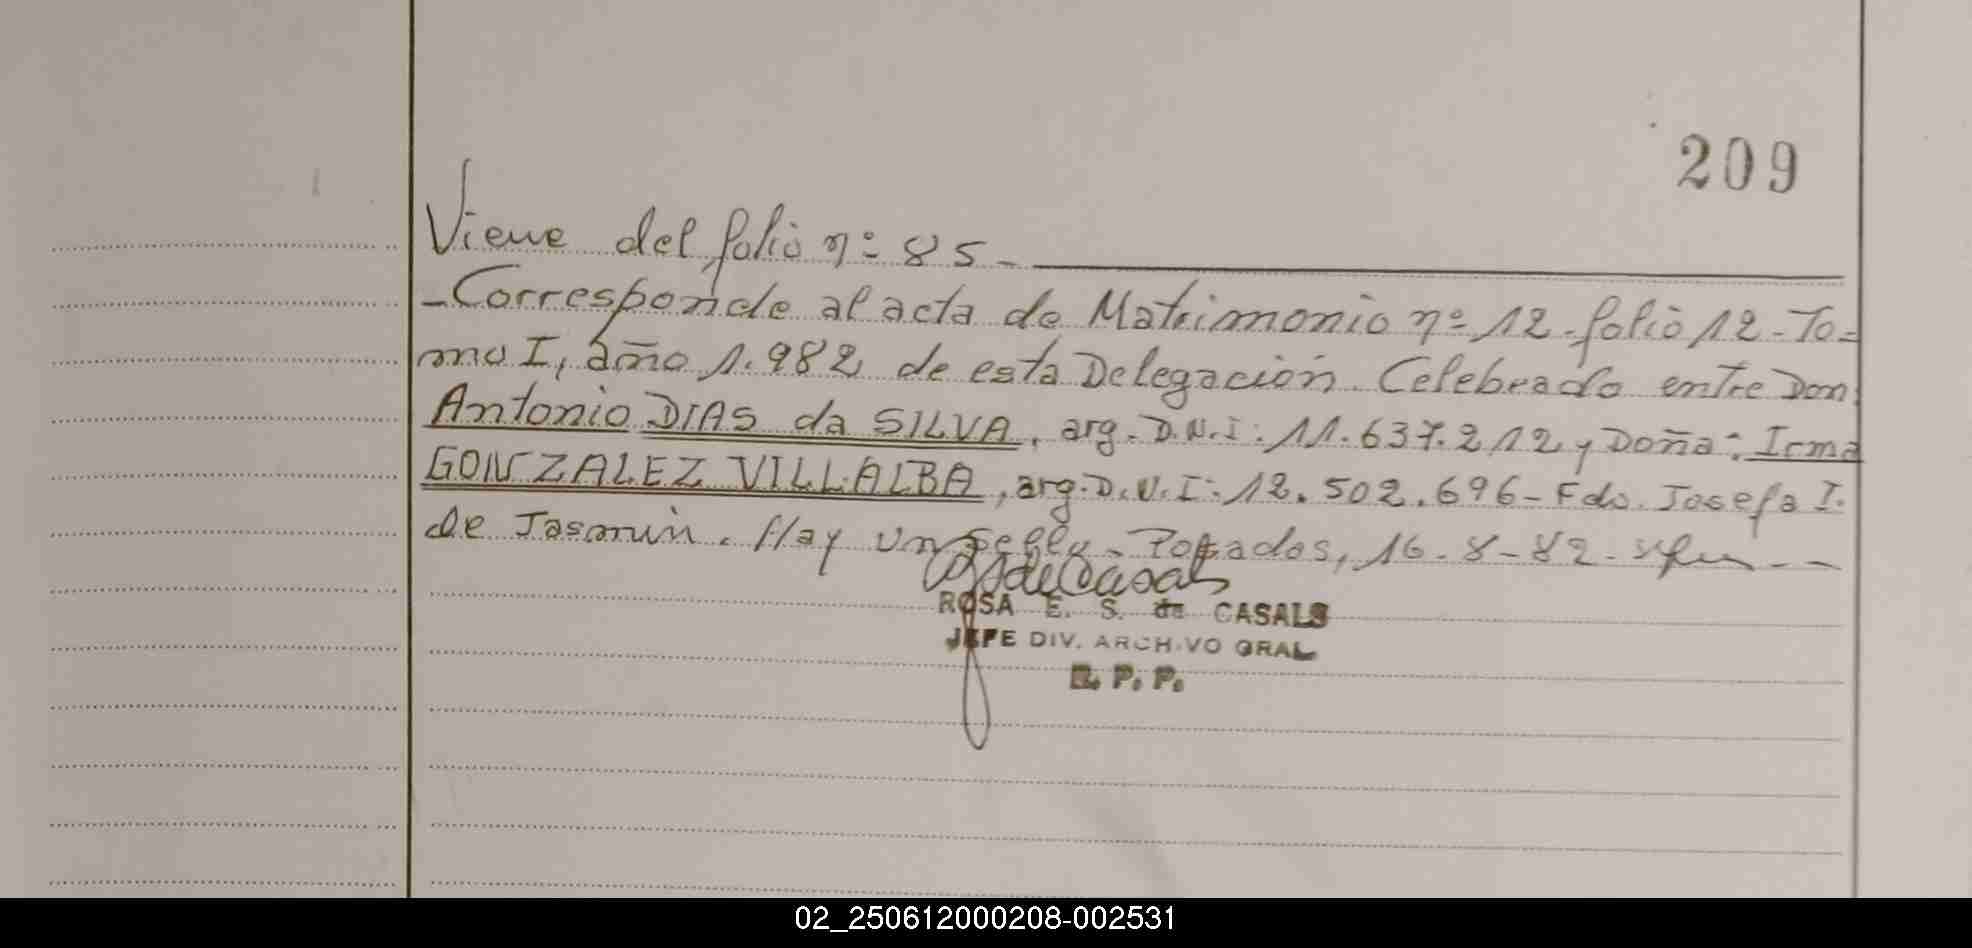 209
Viene del folio nº 85 -
- Corresponde al acta de Matrimonio nº 12 - folio 12 - To=
mo I, año 1.982 de esta Delegación. Celebrado entre Don:
Antonio DIAS da SILVA, arg. D.N.I: 11.637.212 y Doña: Irma
GONZALEZ VILLALBA, arg. D.N.I: 12.502.696 - Fdo. Josefa I.
de Jasmin. Hay un sello - Posadas, 16-8-82.
ROSA E. S. de CASALS
JEFE DIV. ARCHIVO GRAL
R. P. P.
02_250612000208-002531